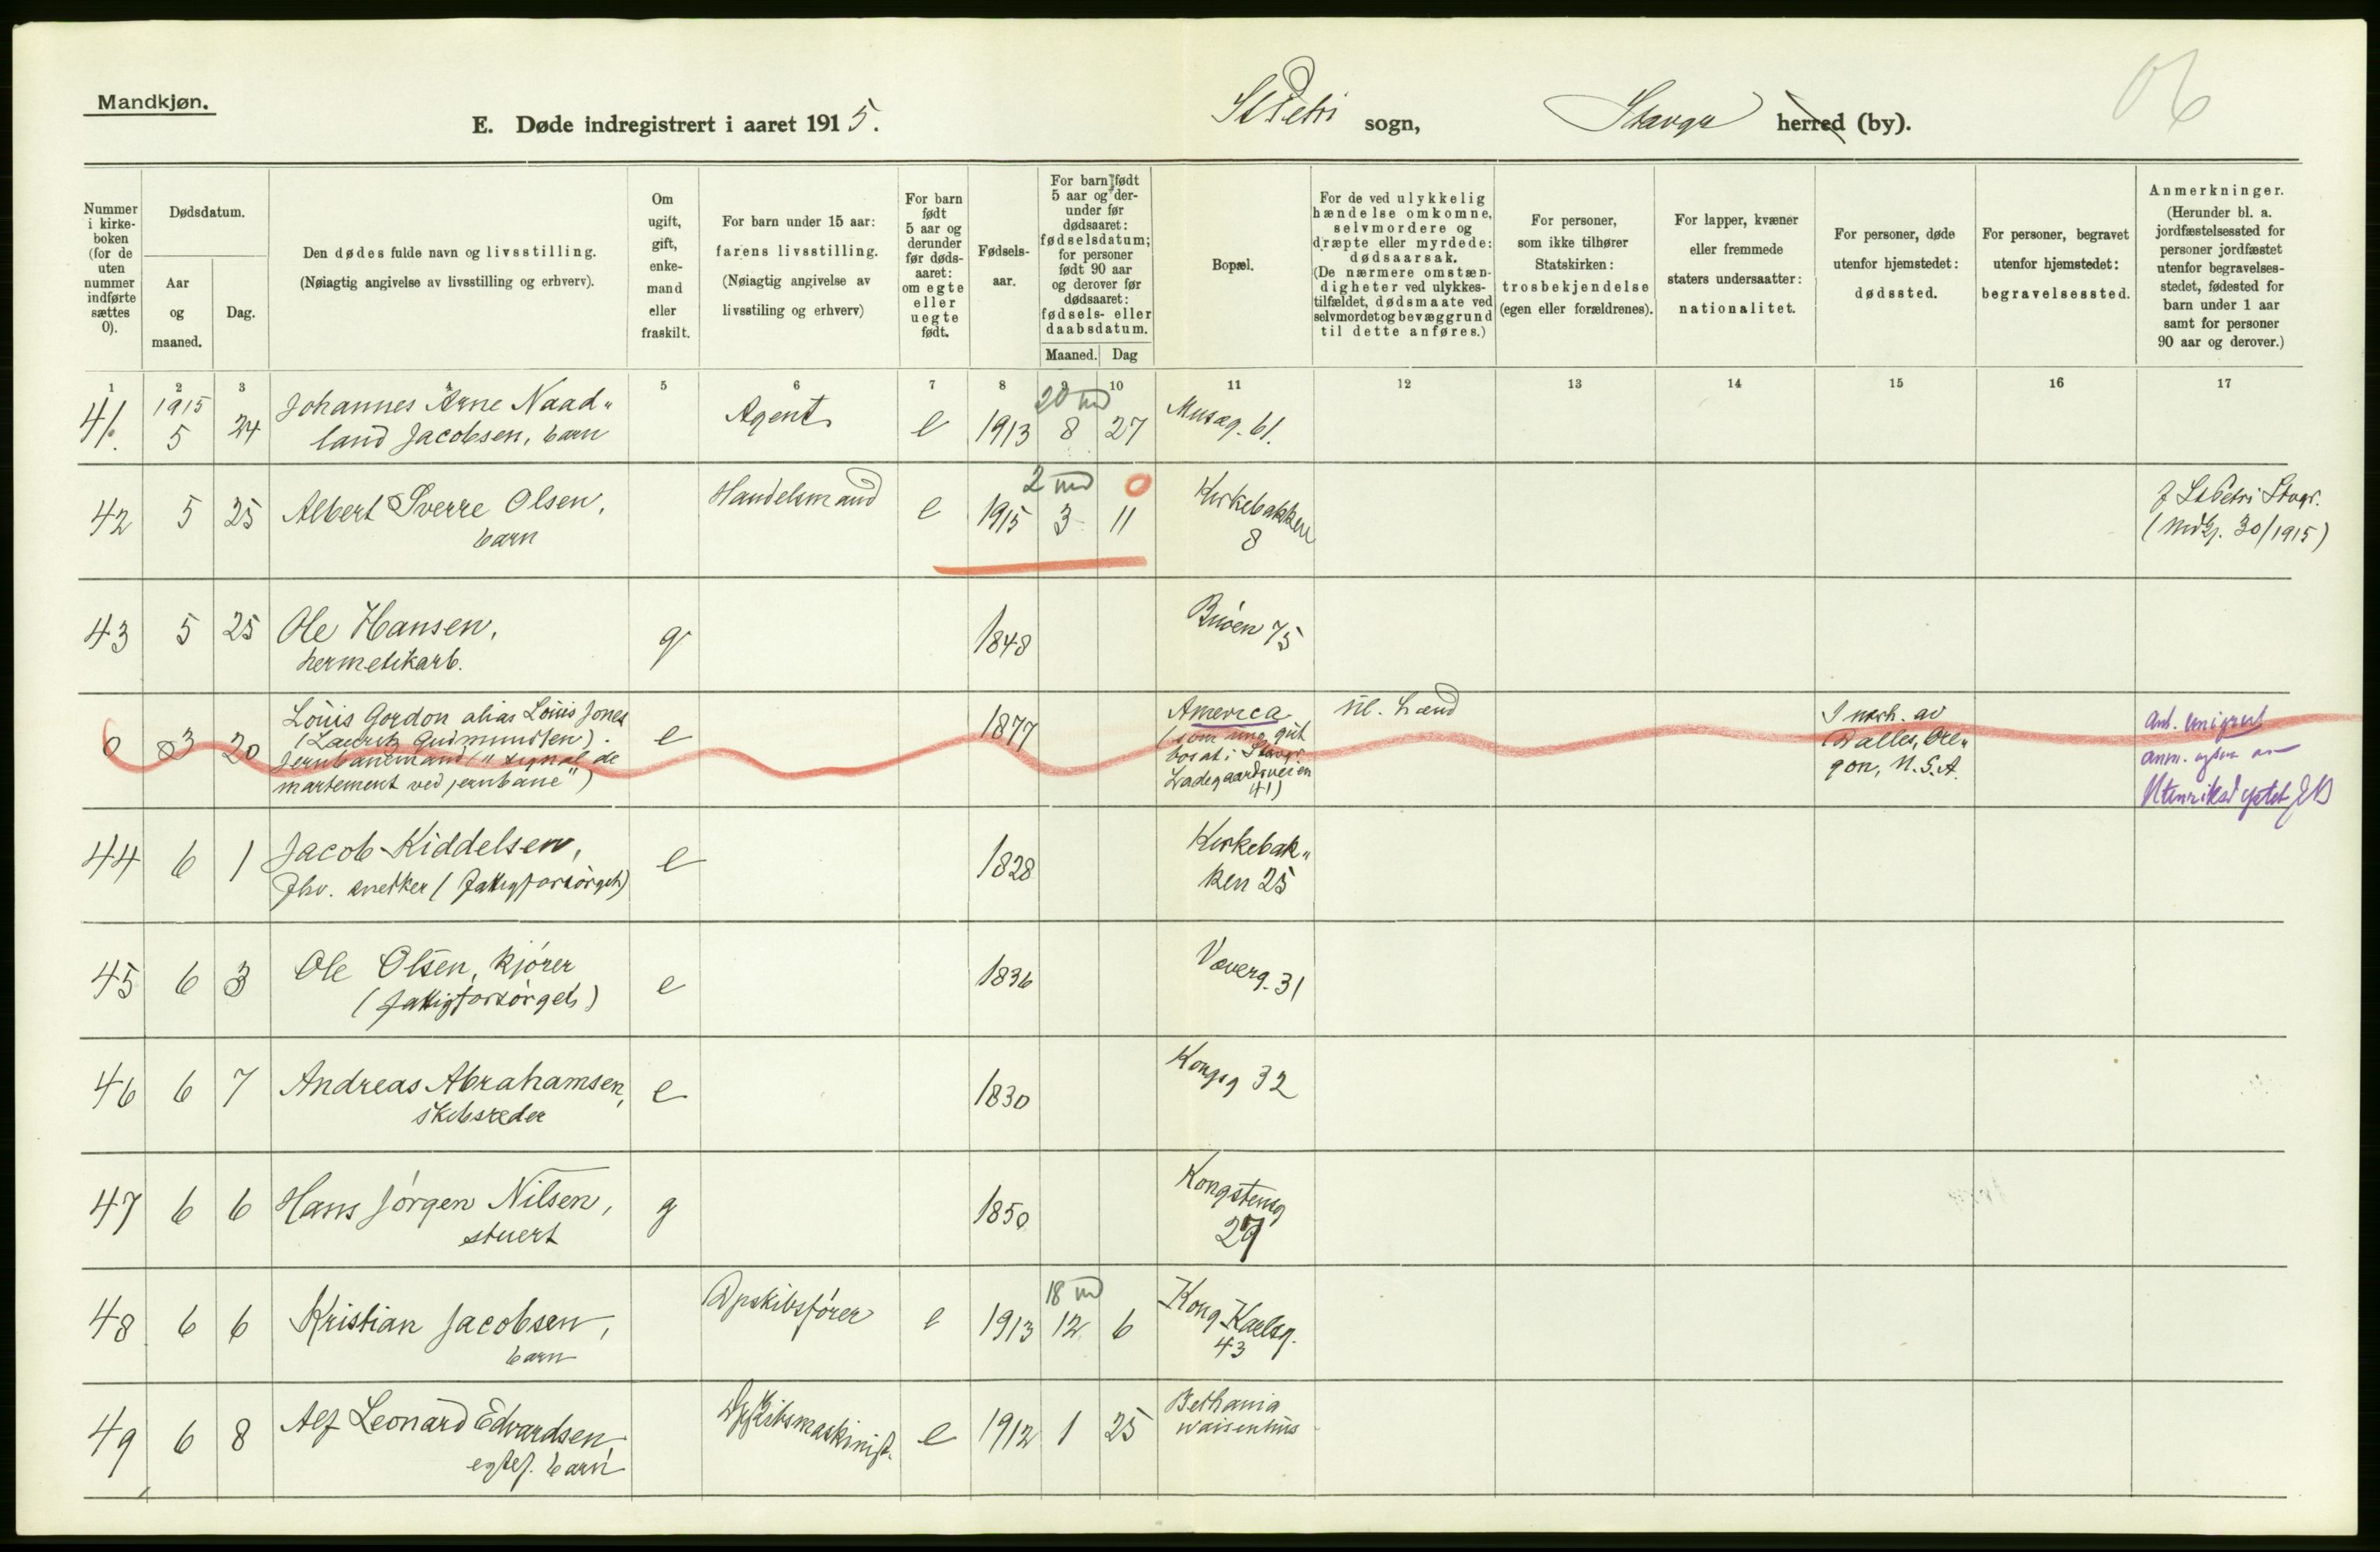 Mandkjøn.
E. Døde indregistrert i aaret 1915.
St Petri sogn,
Stavgr herred (by).
Nummer i kirkeboken (for de uten nummer indførte sættes 0).
Dødsdatum.
Aar og maaned.
Dag.
Den dødes fulde navn og livsstilling.
(Nøiagtig angivelse av livsstilling og erhverv).
Om ugift, gift, enkemand eller fraskilt.
For barn under 15 aar:
farens livsstilling.
(Nøiagtig angivelse av livsstiling og erhverv)
For barn født 5 aar og derunder før dødsaaret: om egte eller uegte født.
Fødselsaar.
For barn født 5 aar og derunder før dødsaaret: fødselsdatum; for personer født 90 aar og derover før dødsaaret: fødsels- eller daabsdatum.
Maaned. Dag
Bopæl.
For de ved ulykkelig hændelse omkomne, selvmordere og dræpte eller myrdede: dødsaarsak.
(De nærmere omstændigheter ved ulykkestilfældet, dødsmaate ved selvmordet og bevæggrund til dette anføres.)
For personer, som ikke tilhører Statskirken: trosbekjendelse (egen eller forældrenes).
For lapper, kvæner eller fremmede staters undersaatter: nationalitet.
For personer, døde utenfor hjemstedet: dødssted.
For personer, begravet utenfor hjemstedet: begravelsessted.
Anmerkninger.
(Herunder bl. a. jordfæstelsessted for personer jordfæstet utenfor begravelsesstedet, fødested for barn under 1 aar samt for personer 90 aar og derover.)
1 2 3 4 5 6 7 8 9 10 11 12 13 14 15 16 17
41. 1915 5 24 Johannes Arne Naad„ Agent e 1913 20 md 8 27 Musæg. 61.
land Jacobsen, barn
42 5 25 Albert Sverre Olsen, Handelsmand e 1915 2 md 3 0 11 Kirkebakken 8 f St Petri Stavgr.
barn (Mdkj. 30/1915)
43 5 25 Ole Hansen, g 1848 Buøen 75
hermetikarb.
0 3 20 Louis Gordon alias Louis Jones e 1877 America
(Lauritz Gudmundsen).
Jernbanemand ("signal de
martement ved jernbane")
(som ung gut
bosat i Stavgr.
Ladegaardsveien
41)
I nærh. av
Dalles, Ore„
gon, U.S.A.
44 6 1 Jacob Kiddelsen, e 1828 Kirkebak„
fhv. snekker (fattigforsørget) ken 25
45 6 3 Ole Olsen, kjører e 1836 Væverg. 31
(fattigforsørget)
46 6 7 Andreas Abrahamsen, e 1830 Kongsg 32
skibsreder
47 6 6 Hans Jørgen Nilsen, g 1850 Kongstensg
stuert 27
48 6 6 Kristian Jacobsen, Dpskibsfører e 1913 18 md 12 6 Kong Karlsg.
barn 43
49 6 8 Alf Leonard Edvardsen, Dpskibsmaskinist. e 1912 1 25 Bethania
egtef. barn waisenhus